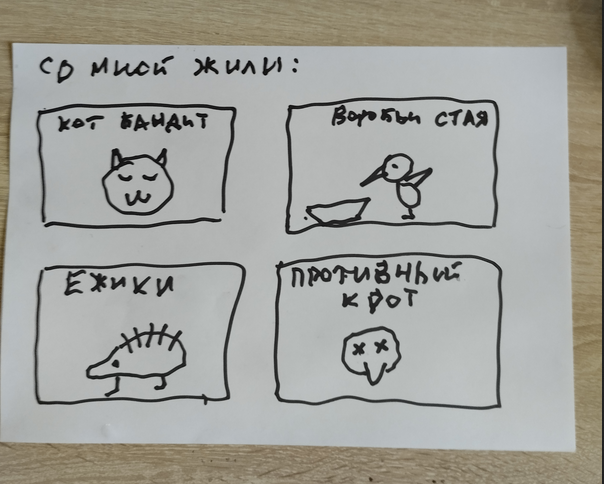 СО МНОЙ ЖИЛИ:
КОТ БАНДИТ
ВОРОБЬИ СТАЯ
ЕЖИКИ
ПРОТИВНЫЙ
КРОТ